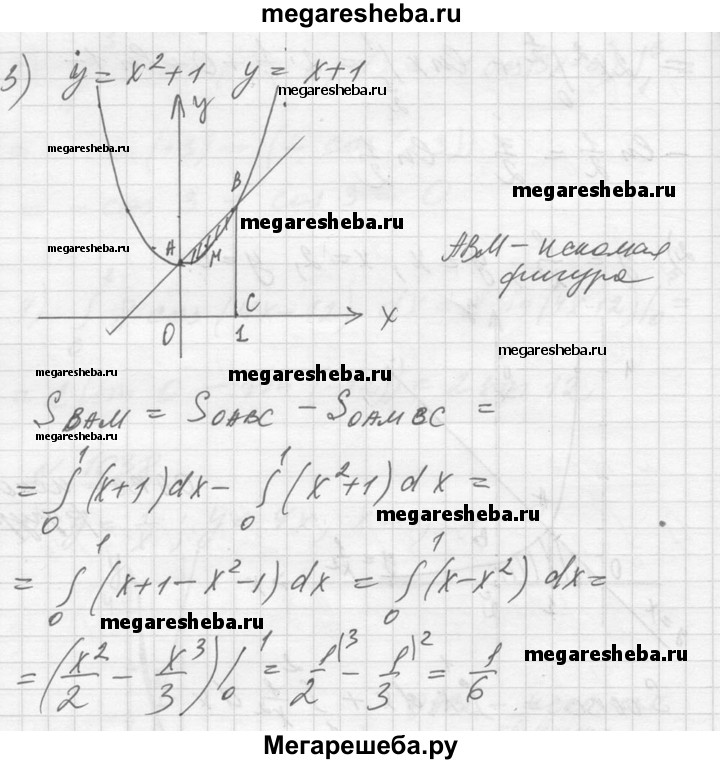 megaresheba.ru
3) y = x²+1 y = x+1
megaresheba.ru
y
megaresheba.ru
B
megaresheba.ru
megaresheba.ru
A
M
megaresheba.ru
ABM – искомая
фигура
C
0 1 x
megaresheba.ru
megaresheba.ru
megaresheba.ru
S_BAM = S_OABC − S_OAMBC =
megaresheba.ru
= ∫₀¹ (x+1)dx − ∫₀¹ (x²+1)dx =
megaresheba.ru
= ∫₀¹ (x+1−x²−1) dx = ∫₀¹ (x−x²) dx =
megaresheba.ru
= (x²/2 − x³/3) |₀¹ = 1/2 ⁾³ − 1/3 ⁾² = 1/6
megaresheba.ru
Мегарешеба.ру